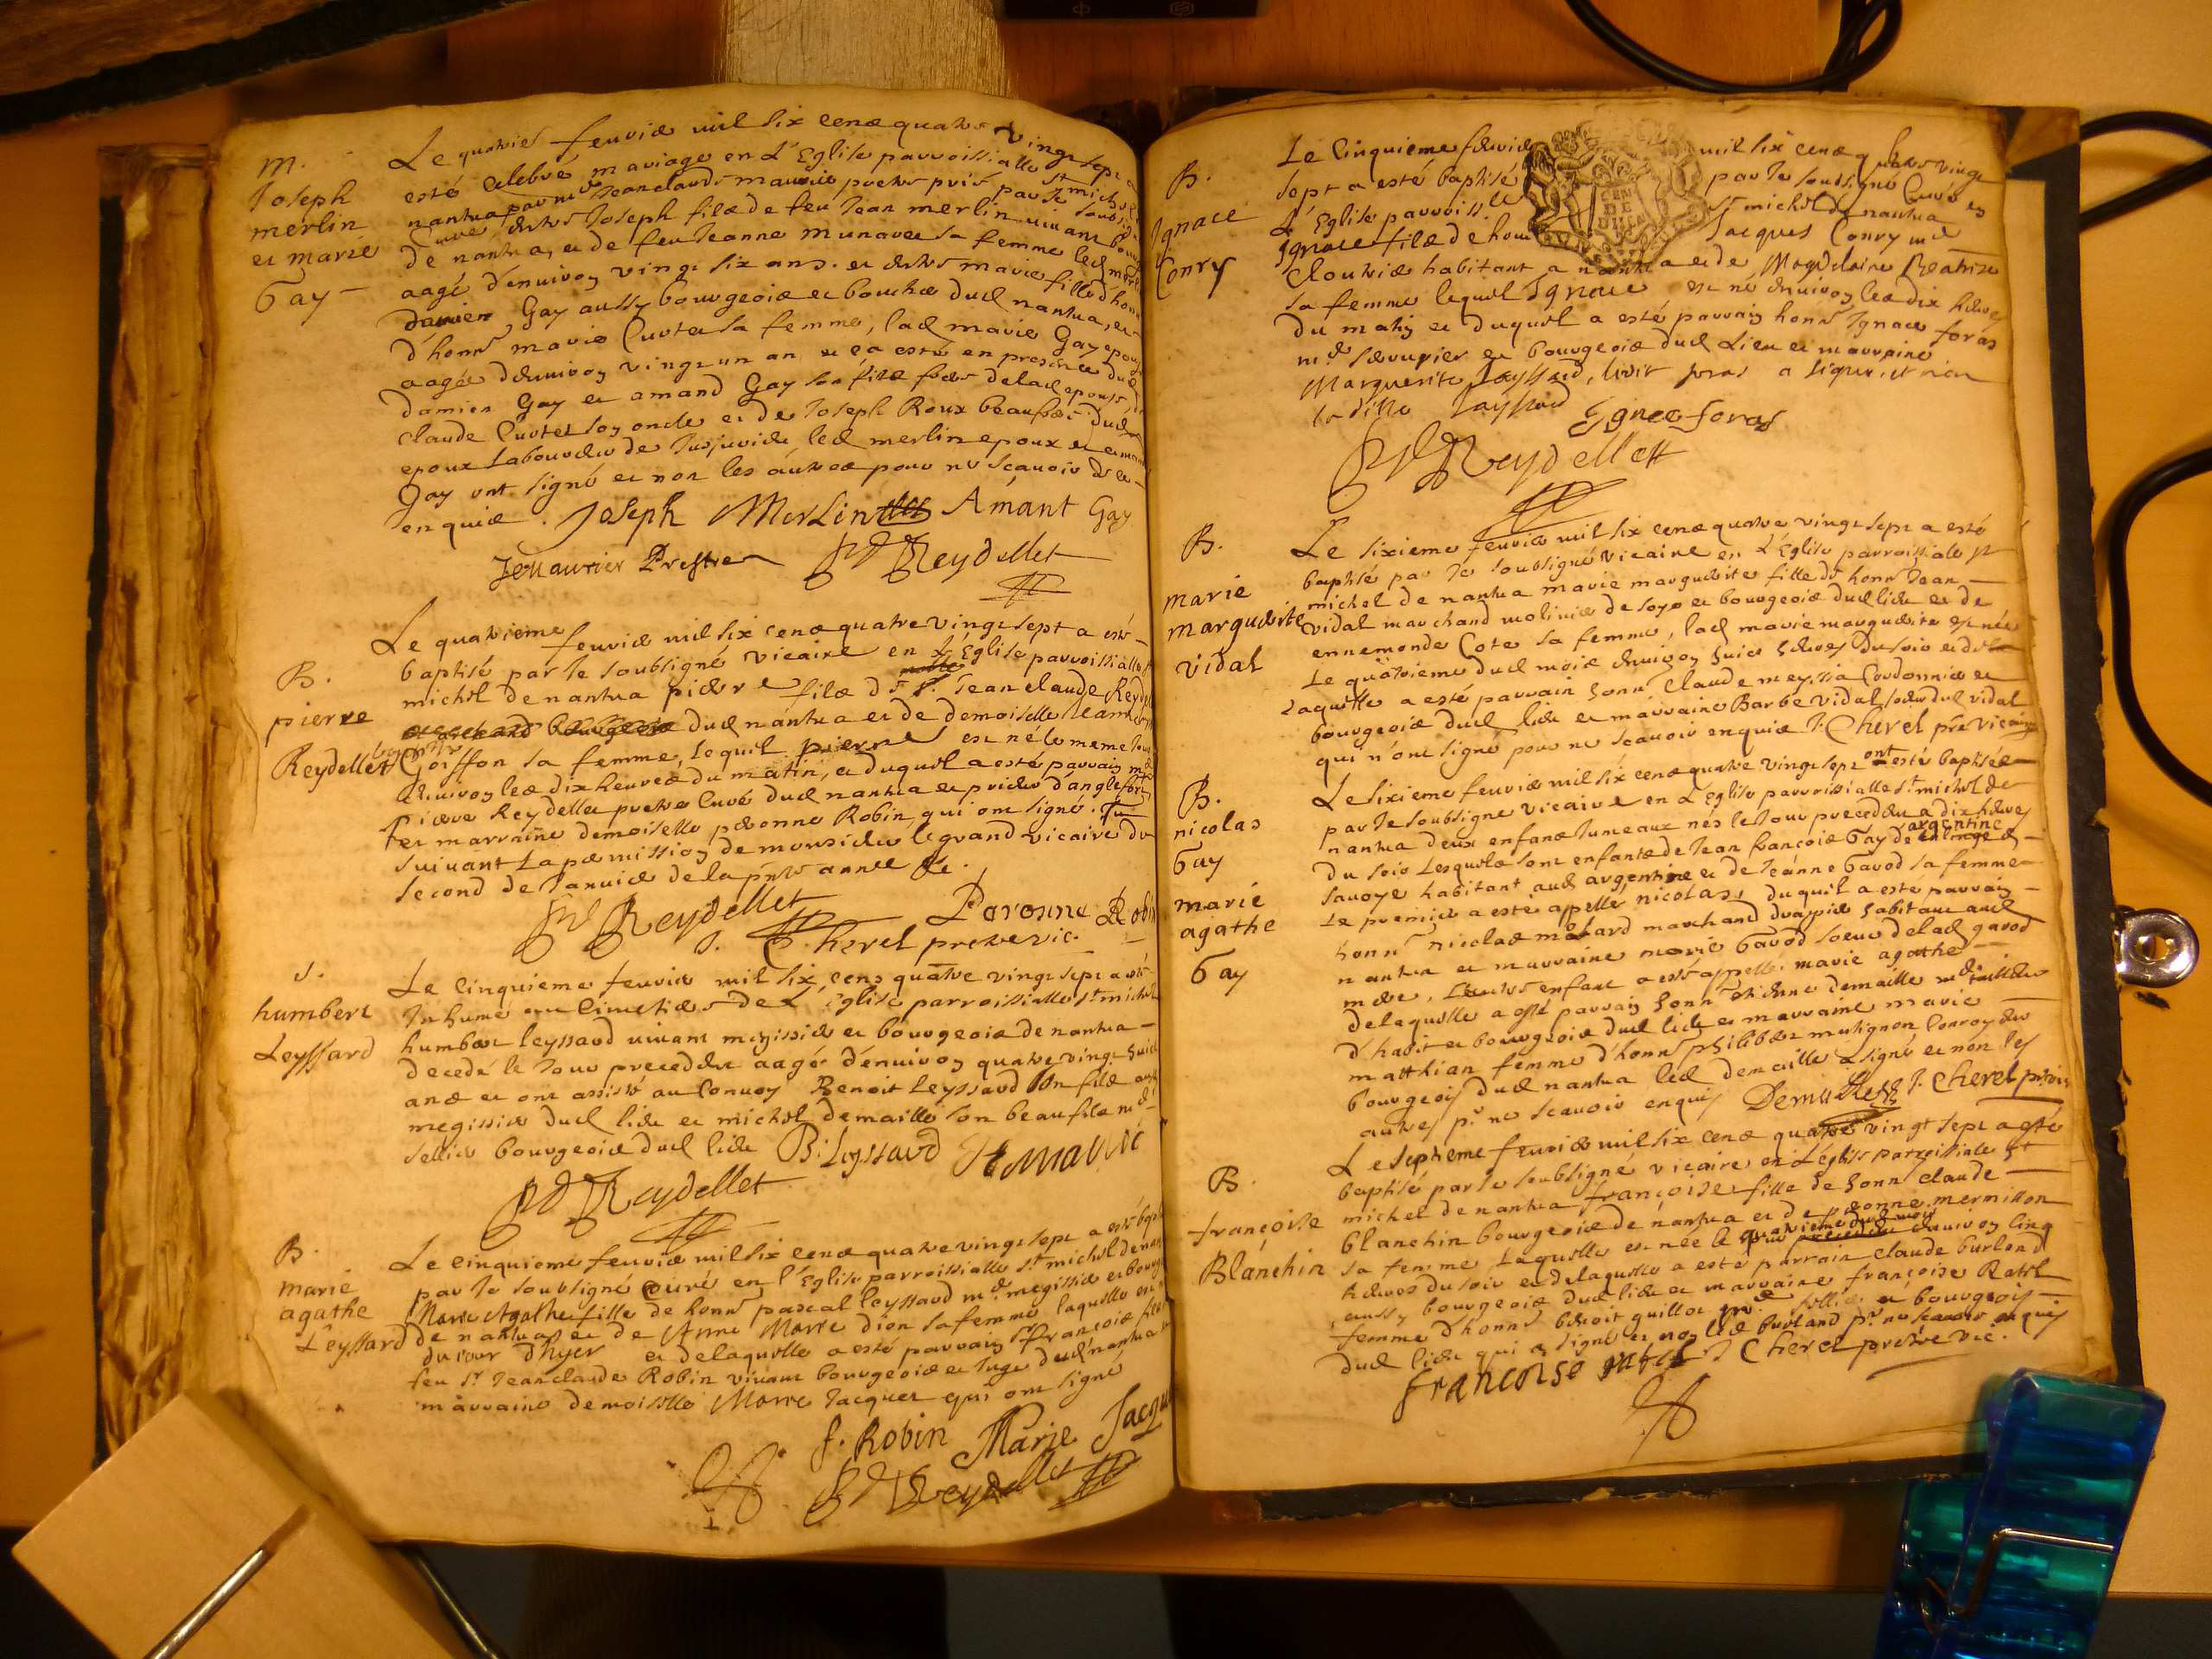 m.
Joseph
merlin
et marie
Gay
Le quatrieme fevrier mil six cens quatre vingt sept a
esté celebré mariage en L'Eglise parroissialle St michel
nantua par Jean claude maurier prestre pris par le soubsigné
Curé entre Joseph fils de feu Jean merlin vivant bourg
de nantua, et de feu Jeanne munaret sa femme led merlin
aagé d'environ vingt six ans. et entre marie fille d'honn
damien Gay aussy bourgeois et boucher dud nantua, et
d'honn marie Curtet sa femme, lad marie Gay epouse
aagée d'environ vingt un an et ca esté en presence dud
damien Gay et amand Gay son fils frere de lad epouse,
claude Curtet son oncle et de Joseph Roux beaufrere dud
epoux Laboureur de led merlin epoux et amand
Gay ont signé et non les autres pour ne scavoir de ce
enquis. Joseph Merlin Amant Gay
Jc Maurier Prestre Reydellet
B.
pierre
Reydellet
Le quatrieme fevrier mil six cens quatre vingt sept a esté
baptisé par Je soubsigné vicaire en L'Eglise parroissialle St
michel de nantua pierre fils de Sr. Jean claude Reydellet
bourgeois dud nantua et de demoiselle Jeanne
Goiffon sa femme, lequel pierre est né le meme Jour
environ les dix heures du matin, et duquel a esté parrain mre
pierre Reydellet prestre Curé dud nantua et prieur d'anglefort
et marraine demoiselle peronne Robin, qui ont signé.
suivant La permission de monsieur le grand vicaire du
second de Janvier de la pnte annee &c.
Reydellet Peronne Robin
J. Cherel prestre vic.
S.
humbert
Leyssard
Le cinquieme fevrier mil six cens quatre vingt sept a esté
Inhumé au Cimetiere de L'Eglise parroissialle St michel
humbert leyssard vivant megissier et bourgeois de nantua
decedé le Jour precedent aagé d'environ quatre vingt huict
ans et ont assisté au Convoy Benoit Leyssard son fils aussy
megissier dud lieu et michel demaille son beaufils md
sellier bourgeois dud lieu B. Leyssard
Reydellet
B.
marie
agathe
Leyssard
Le cinquieme fevrier mil six cens quatre vingt sept a esté bapt
par Je soubsigné Curé en l'Eglise parroissialle St michel de nan
Marie Agathe fille de honn pascal leyssard md megissier et bourg
de nantua, et de Anne Marie dion sa femme laquelle est
du jour d'hyer et de laquelle a esté parrain Sr françois fils
feu Sr Jean claude Robin vivant bourgeois et Juge dud nantua
marraine demoiselle Marie Jacquet qui ont signé
f. Robin Marie Jacqu
Reydellet
B.
Ignace
Conry
Le Cinquieme fevrier mil six cens quatre vingt
sept a esté baptisé par Je soubsigné Curé en
L'Eglise parroiss.lle St michel de nantua
Ignace fils de honn Jacques Conry md
Cloutrier habitant a nantua et de Magdelaine Beatrix
sa femme lequel Ignace est né environ les dix heures
du matin et duquel a esté parrain honn Ignace foras
md serrurier et bourgeois dud Lieu et marraine
Marguerite Leyssard, ledit foras a signé, et non
ladite Layssard
Ignace foras
Reydellett
B.
marie
marguerite
vidal
Le sixieme fevrier mil six cens quatre vingt sept a esté
baptisé par Je soubsigné vicaire en L'Eglise parroissiale St
michel de nantua marie marguerite fille de honn Jean
vidal marchand molinier de soye et bourgeois dud lieu et de
ennemonde Cote sa femme, lad marie marguerite est née
Le quatrieme dud mois environ huict heures du soir et de
Laquelle a esté parrain honn Claude meyssia Cordonnier et
bourgeois dud lieu et marraine Barbe vidal soeur dud vidal
qui n'ont signé pour ne scavoir enquis J. Cherel pre vicaire
B.
nicolas
Gay
marie
agathe
Gay
Le sixieme fevrier mil six cens quatre vingt sept ont esté baptisées
par Je soubsigne vicaire en L'eglise parroissialle St michel de
nantua deux enfans Jumeaux nés le Jour precedent a dix heures
du soir Lesquels sont enfants de Jean francois Gay de argentine
Savoye habitant aud argentine et de Jeanne Gavod sa femme
Le premier a esté appellé nicolas, duquel a esté parrain
honn nicolas metard marchand drapier habitant aud
nantua et marraine marie Gavod soeur de lad gavod
mere, L'autre enfant a esté appellé marie agathe
de laquelle a esté parrain honn etienne demaille md tailleur
d'habit et bourgeois dud lieu et marraine marie
matthian femme d'honn philibert mutignon Conroyeur
bourgeois dud nantua led demaille a signé et non les
autres pr. ne scavoir enquis Demallie J. Cherel pr vic
B.
françoise
Blanchin
Le septieme fevrier mil six cens quatre vingt sept a esté
baptisé par Je soubsigné vicaire en L'église parroissiale St
michel de nantua françoise fille de honn claude
blanchin bourgeois de nantua et de peronne mermillon
sa femme Laquelle est née le quatrieme dud mois environ cinq
heures du soir et de laquelle a esté parrain claude burland
aussy bourgeois dud lieu et marraine françoise Ravel
femme d'honn benoit guillot md sellier et bourgeois
dud lieu qui a signé et non led burland pr. ne scavoir enquis
francoise ravel J Cherel prestre vic.